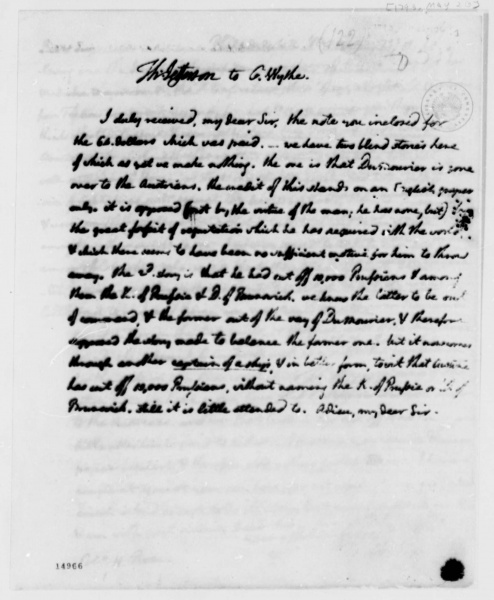 Th: Jefferson to G. Wythe.
I duly received, my dear Sir, the note you inclosed for
the 60. dollars which was paid. we have two blind stories here
of which as yet we make nothing. the one is that Dumourier is gone
over to the Austrians. the credit of this stands on an English paper
only. it is opposed (not by the virtue of the man, he has none, but)
the great forfeit of reputation which he has acquired with the world
& which there seems to have been no sufficient motive for him to throw
away. the 2d. story is that he had cut off 10,000 Prussians & among
them the K. of Prussia & D. of Brunswick. we know the latter to be out
of command, & the former out of the way of Dumourier, & therefore
supposed the story made to balance the former one. but it now comes
through another captain of a ship, & in better form, towit that Custine
has cut off 10,000 Prussians, without naming the K. of Prussia or D. of
Brunswick. still it is little attended to. Adieu, my dear Sir.
14966